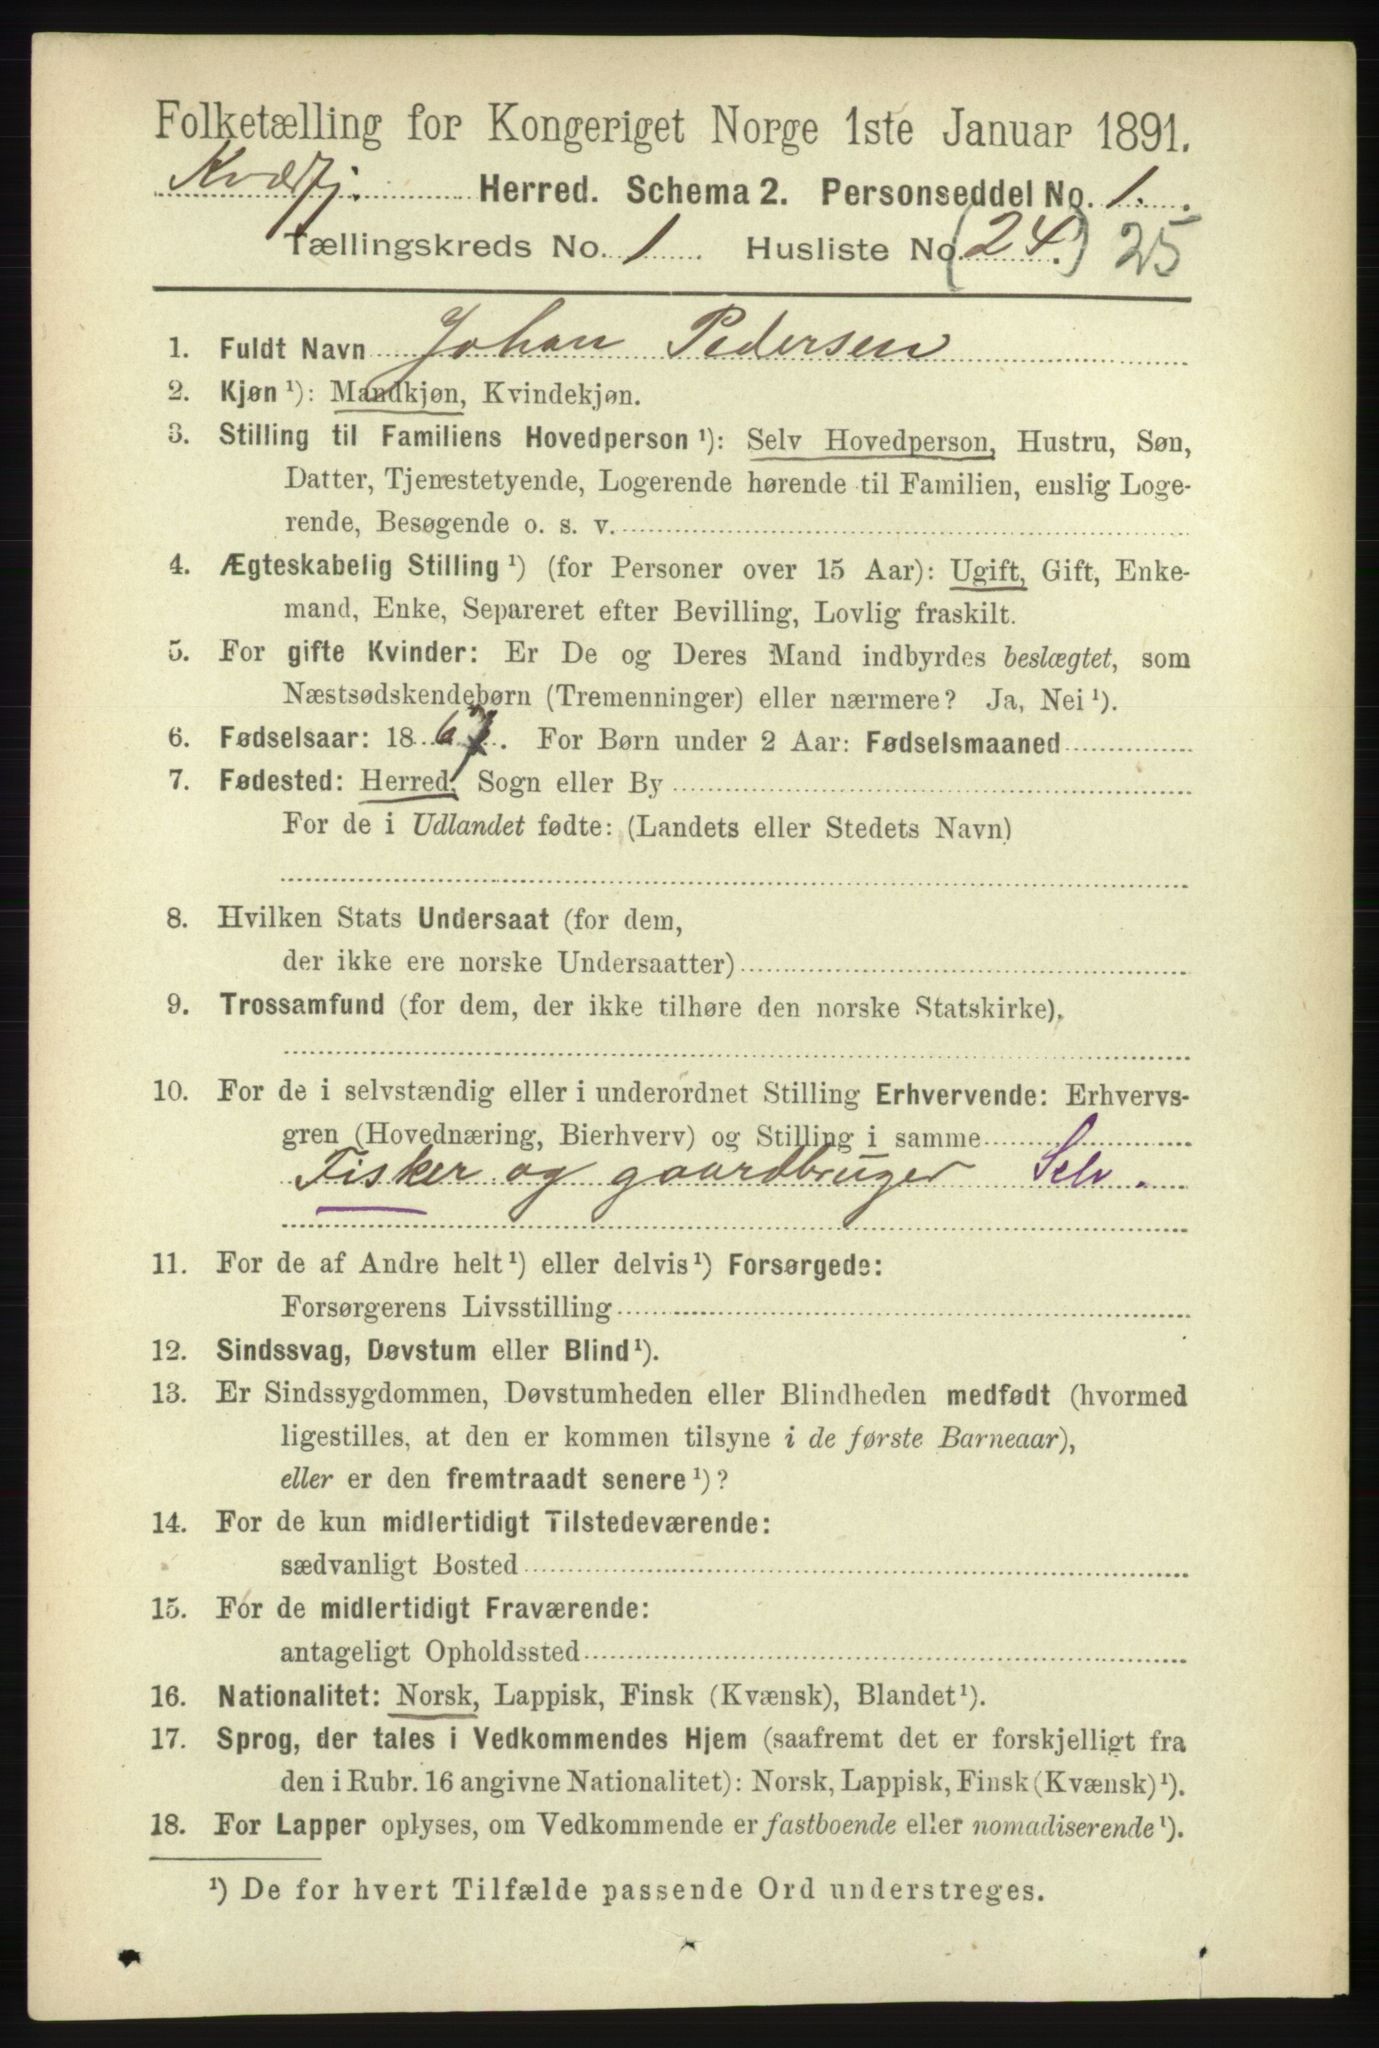 Folketælling for Kongeriget Norge 1ste Januar 1891.
Kvæfj. Herred. Schema 2. Personseddel No. 1.
Tællingskreds No. 1 Husliste No. (24.) 25
1. Fuldt Navn Johan Pedersen
2. Kjøn ¹): Mandkjøn, Kvindekjøn.
3. Stilling til Familiens Hovedperson ¹): Selv Hovedperson, Hustru, Søn,
Datter, Tjenestetyende, Logerende hørende til Familien, enslig Loge-
rende, Besøgende o. s. v.
4. Ægteskabelig Stilling ¹) (for Personer over 15 Aar): Ugift, Gift, Enke-
mand, Enke, Separeret efter Bevilling, Lovlig fraskilt.
5. For gifte Kvinder: Er De og Deres Mand indbyrdes beslægtet, som
Næstsødskendebørn (Tremenninger) eller nærmere? Ja, Nei ¹).
6. Fødselsaar: 1867. For Børn under 2 Aar: Fødselsmaaned
7. Fødested: Herred, Sogn eller By
For de i Udlandet fødte: (Landets eller Stedets Navn)
8. Hvilken Stats Undersaat (for dem,
der ikke ere norske Undersaatter)
9. Trossamfund (for dem, der ikke tilhøre den norske Statskirke).
10. For de i selvstændig eller i underordnet Stilling Erhvervende: Erhvervs-
gren (Hovednæring, Bierhverv) og Stilling i samme
Fisker og gaardbruger Selv.
11. For de af Andre helt ¹) eller delvis ¹) Forsørgede:
Forsørgerens Livsstilling
12. Sindssvag, Døvstum eller Blind ¹).
13. Er Sindssygdommen, Døvstumheden eller Blindheden medfødt (hvormed
ligestilles, at den er kommen tilsyne i de første Barneaar),
eller er den fremtraadt senere ¹)?
14. For de kun midlertidigt Tilstedeværende:
sædvanligt Bosted
15. For de midlertidigt Fraværende:
antageligt Opholdssted
16. Nationalitet: Norsk, Lappisk, Finsk (Kvænsk), Blandet ¹).
17. Sprog, der tales i Vedkommendes Hjem (saafremt det er forskjelligt fra
den i Rubr. 16 angivne Nationalitet): Norsk, Lappisk, Finsk (Kvænsk) ¹).
18. For Lapper oplyses, om Vedkommende er fastboende eller nomadiserende ¹).
¹) De for hvert Tilfælde passende Ord understreges.